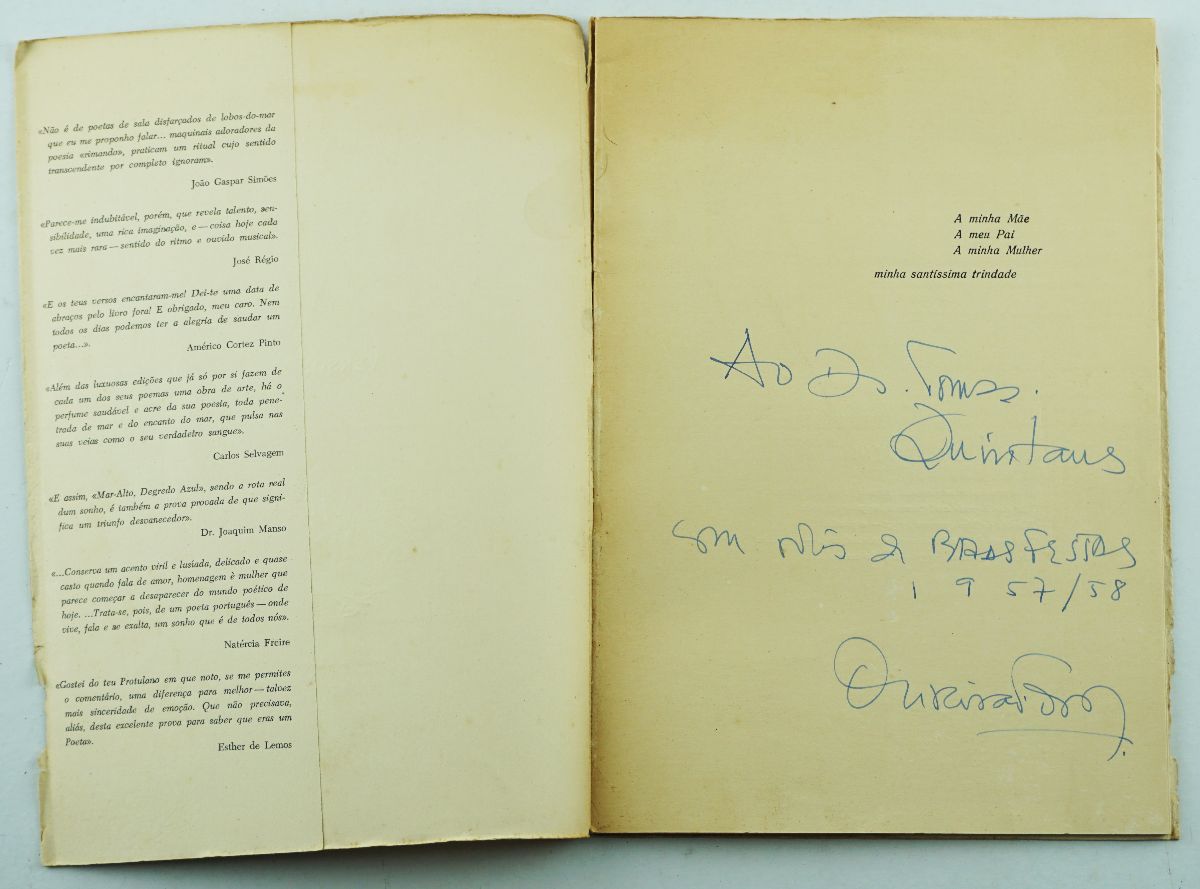 «Não é de poetas de sala disfarçados de lobos-do-mar
que eu me proponho falar... maquinais adoradores da
poesia «rimando», praticam um ritual cujo sentido
transcendente por completo ignoram».
João Gaspar Simões
«Parece-me indubitável, porém, que revela talento, sen-
sibilidade, uma rica imaginação, e — coisa hoje cada
vez mais rara — sentido do ritmo e ouvido musical».
José Régio
«E os teus versos encantaram-me! Dei-te uma data de
abraços pelo livro fora! E obrigado, meu caro. Nem
todos os dias podemos ter a alegria de saudar um
poeta...».
Américo Cortez Pinto
«Além das luxuosas edições que já só por si fazem de
cada um dos seus poemas uma obra de arte, há o
perfume saudável e acre da sua poesia, toda pene-
trada de mar e do encanto do mar, que pulsa nas
suas veias como o seu verdadeiro sangue».
Carlos Selvagem
«E assim, «Mar-Alto, Degredo Azul», sendo a rota real
dum sonho, é também a prova provada de que signi-
fica um triunfo desvanecedor».
Dr. Joaquim Manso
«...Conserva um acento viril e lusíada, delicado e quase
casto quando fala de amor, homenagem à mulher que
parece começar a desaparecer do mundo poético de
hoje. ...Trata-se, pois, de um poeta português — onde
vive, fala e se exalta, um sonho que é de todos nós».
Natércia Freire
«Gostei do teu Protulano em que noto, se me permites
o comentário, uma diferença para melhor — talvez
mais sinceridade de emoção. Que não precisava,
aliás, desta excelente prova para saber que eras um
Poeta».
Esther de Lemos
A minha Mãe
A meu Pai
A minha Mulher
minha santíssima trindade
Ao Dr.
Quintans
com BOAS FESTAS
1957/58